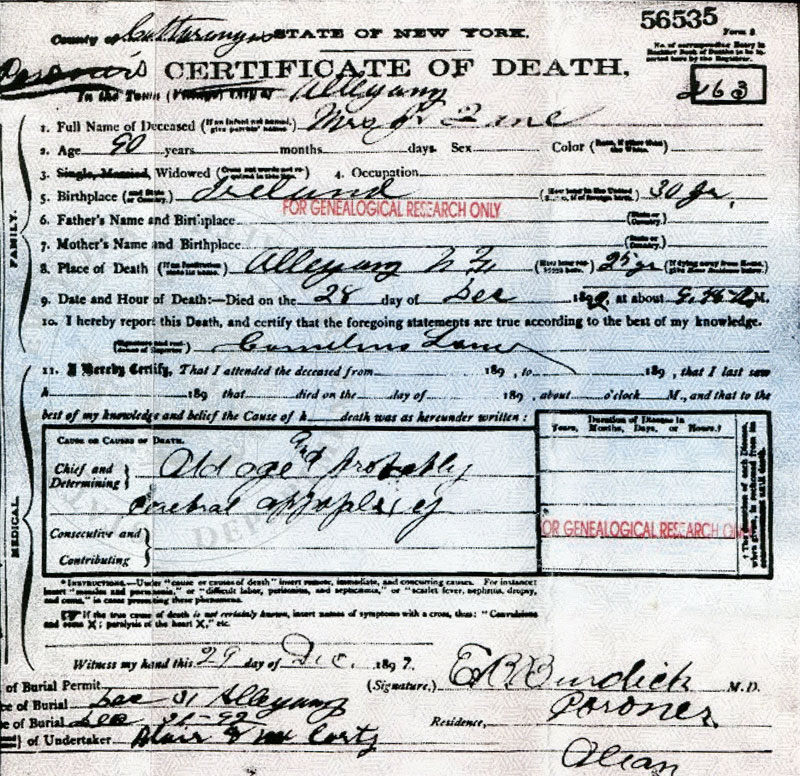 56535
County of Cattaraugus STATE OF NEW YORK. Form 2
No. of corresponding Entry in
ported here by the Registrar.
Coroner's CERTIFICATE OF DEATH.
263
In the Town (Village) City of Allegany
1. Full Name of Deceased (If an Infant not named, give parents' names) Mrs
2. Age 90 years months days. Sex Color
3. Single, Married, Widowed 4. Occupation
5. Birthplace (and State or Country.) Ireland 30 yr.
FOR GENEALOGICAL RESEARCH ONLY
6. Father's Name and Birthplace (State or Country.)
7. Mother's Name and Birthplace (State or Country.)
8. Place of Death Allegany N Y 25 yr
9. Date and Hour of Death:—Died on the 28 day of Dec 189 , at about M.
10. I hereby report this Death, and certify that the foregoing statements are true according to the best of my knowledge.
Cornelius
11. I Hereby Certify, That I attended the deceased from 189 , to 189 , that I last saw
h 189 that died on the day of 189 , about o'clock M., and that to the
best of my knowledge and belief the Cause of h death was as hereunder written:
FAMILY.
MEDICAL.
CAUSE OR CAUSES OF DEATH.
Duration of Disease in
Years, Months, Days, or Hours.†
Chief and Determining Old age and probably
cerebral appoplexy
Consecutive and
Contributing
OR GENEALOGICAL RESEARCH
*INSTRUCTIONS.—Under "cause or causes of death" insert remote, immediate, and concurring causes. For instance:
insert "measles and pneumonia," or "difficult labor, peritonitis, and septicæmia," or "scarlet fever, nephritis, dropsy,
and coma," in cases presenting these phenomena.
If the true cause of death is not certainly known, insert names of symptoms with a cross, thus: "Convulsions
and coma X; paralysis of the heart X," etc.
Witness my hand this 29 day of Dec. 1897.
(Signature,) E B Burdick M.D.
of Burial Permit
ce of Burial Dec 31 Allegany
Coroner
e of Burial Dec 31-97
Residence,
} of Undertaker Blair & Mc Carty
Olean